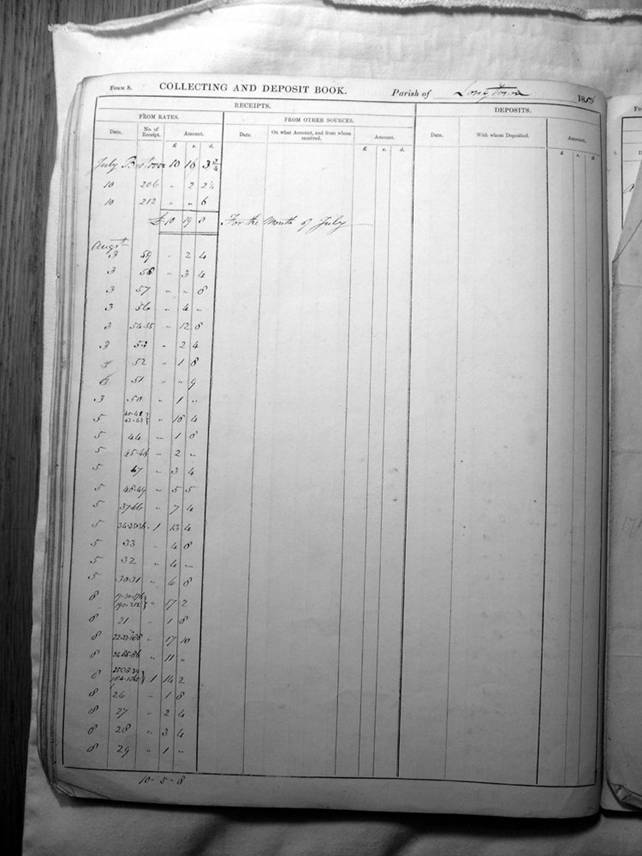 FORM 8. COLLECTING AND DEPOSIT BOOK. Parish of Longtown 18
RECEIPTS. DEPOSITS.
FROM RATES. FROM OTHER SOURCES.
Date. No. of Receipt. Amount. Date. On what Account, and from whom received. Amount. Date. With whom Deposited. Amount.
£. s. d. £. s. d. £. s. d.
July 10 16 3
10 206 " 2 2½
10 212 " " 6
£ 10 19 8 For the Month of July
Augst
3 59 " 2 4
3 58 " 3 4
3 57 " " 8
3 56 " 4 "
3 54-55 " 12 8
3 53 " 2 4
52 " 1 8
51 " " 9
3 50 " 1 "
5 " 16 4
5 44 " 1 8
5 45-46 " 2 "
5 47 " 3 4
5 48-49 " 5 5
5 37-66 " 7 4
5 1 13 4
5 33 " 4 8
5 32 " 4 "
5 30-31 " 6 8
8 " 17 2
8 21 " 1 8
8 " 17 10
8 " 11 "
8 1 14 2
8 26 " 1 8
8 27 " 2 4
8 28 " 3 4
8 29 " 1 "
10-5-8